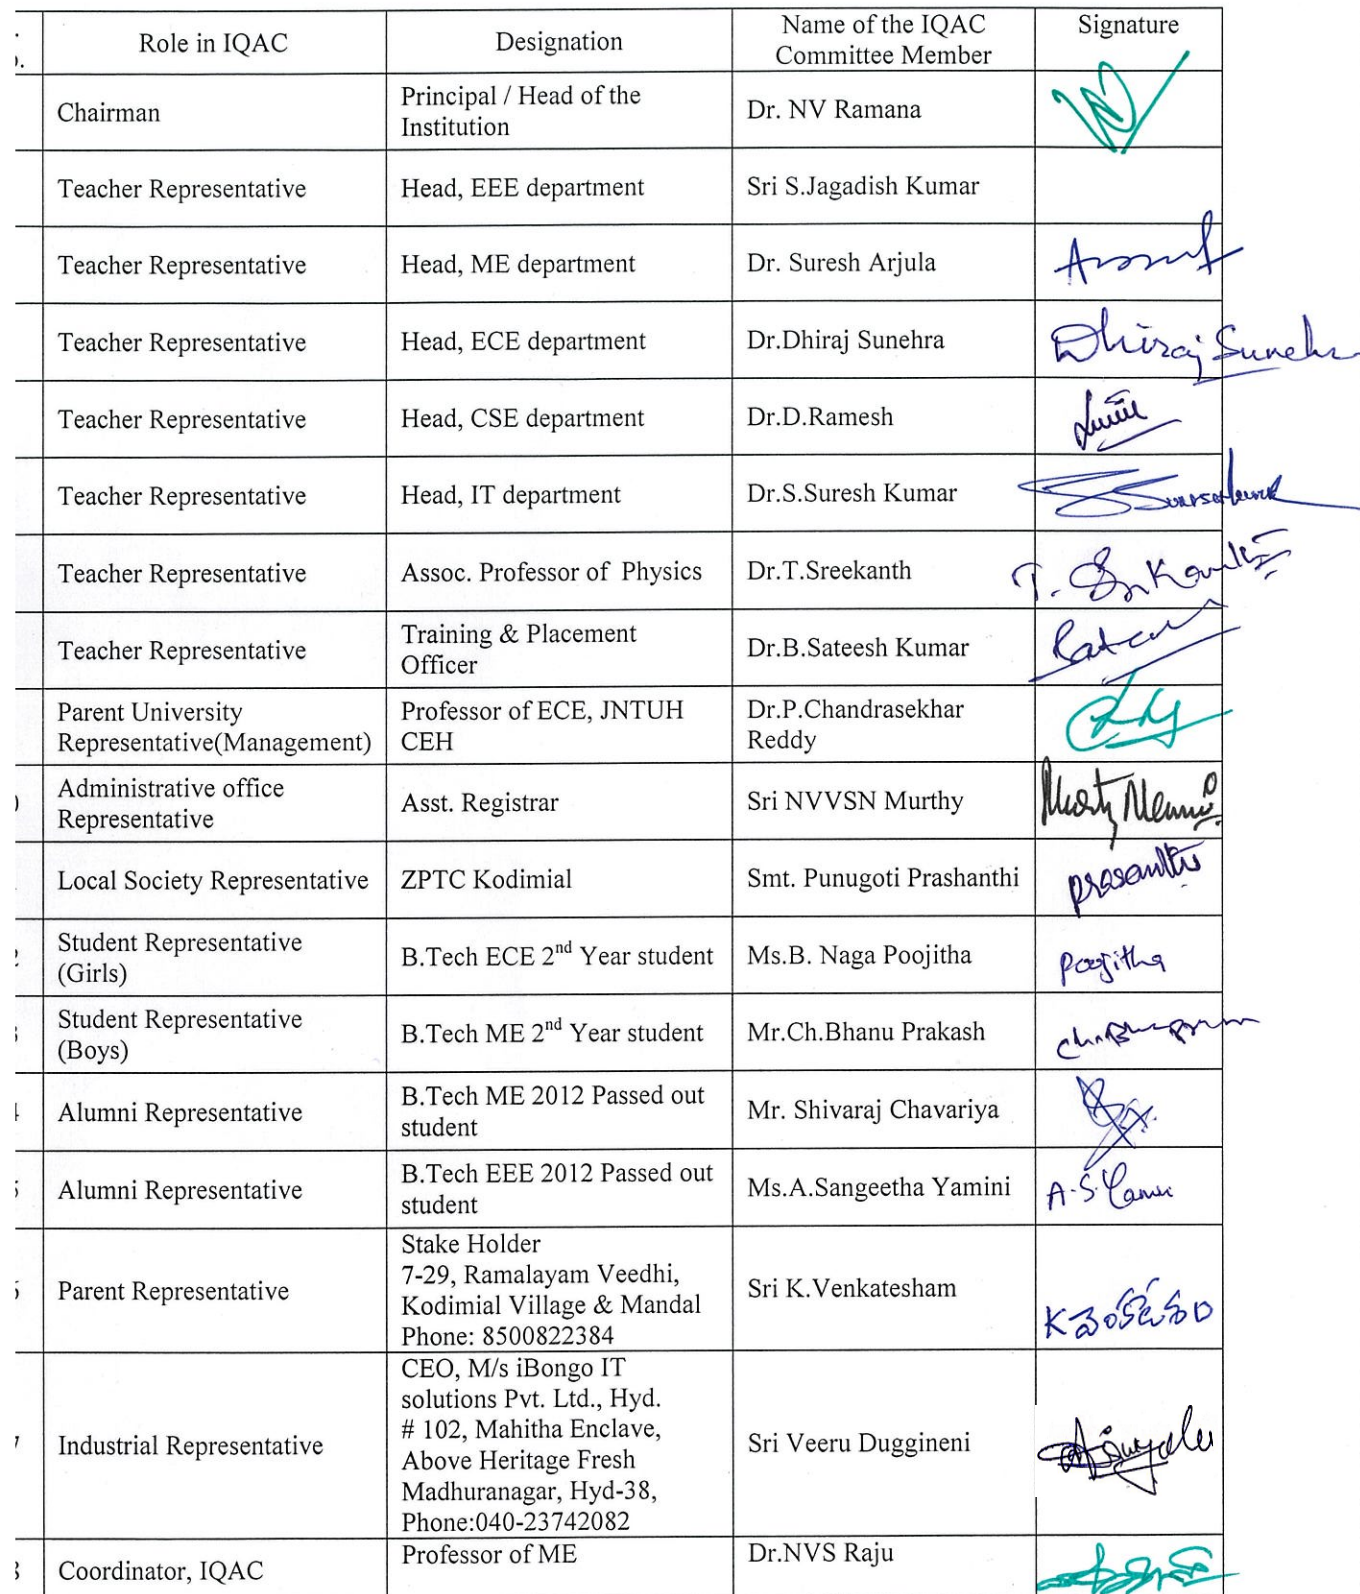 Role in IQAC
Designation
Name of the IQAC
Committee Member
Signature
Chairman
Principal / Head of the
Institution
Dr. NV Ramana
Teacher Representative
Head, EEE department
Sri S.Jagadish Kumar
Teacher Representative
Head, ME department
Dr. Suresh Arjula
Teacher Representative
Head, ECE department
Dr.Dhiraj Sunehra
Dhiraj Sunehra
Teacher Representative
Head, CSE department
Dr.D.Ramesh
Teacher Representative
Head, IT department
Dr.S.Suresh Kumar
Teacher Representative
Assoc. Professor of Physics
Dr.T.Sreekanth
Teacher Representative
Training & Placement
Officer
Dr.B.Sateesh Kumar
Parent University
Representative(Management)
Professor of ECE, JNTUH
CEH
Dr.P.Chandrasekhar
Reddy
Administrative office
Representative
Asst. Registrar
Sri NVVSN Murthy
Local Society Representative
ZPTC Kodimial
Smt. Punugoti Prashanthi
Prasanthi
Student Representative
(Girls)
B.Tech ECE 2nd Year student
Ms.B. Naga Poojitha
Poojitha
Student Representative
(Boys)
B.Tech ME 2nd Year student
Mr.Ch.Bhanu Prakash
Alumni Representative
B.Tech ME 2012 Passed out
student
Mr. Shivaraj Chavariya
Alumni Representative
B.Tech EEE 2012 Passed out
student
Ms.A.Sangeetha Yamini
Parent Representative
Stake Holder
7-29, Ramalayam Veedhi,
Kodimial Village & Mandal
Phone: 8500822384
Sri K.Venkatesham
K వెంకటేశం
Industrial Representative
CEO, M/s iBongo IT
solutions Pvt. Ltd., Hyd.
# 102, Mahitha Enclave,
Above Heritage Fresh
Madhuranagar, Hyd-38,
Phone:040-23742082
Sri Veeru Duggineni
Coordinator, IQAC
Professor of ME
Dr.NVS Raju